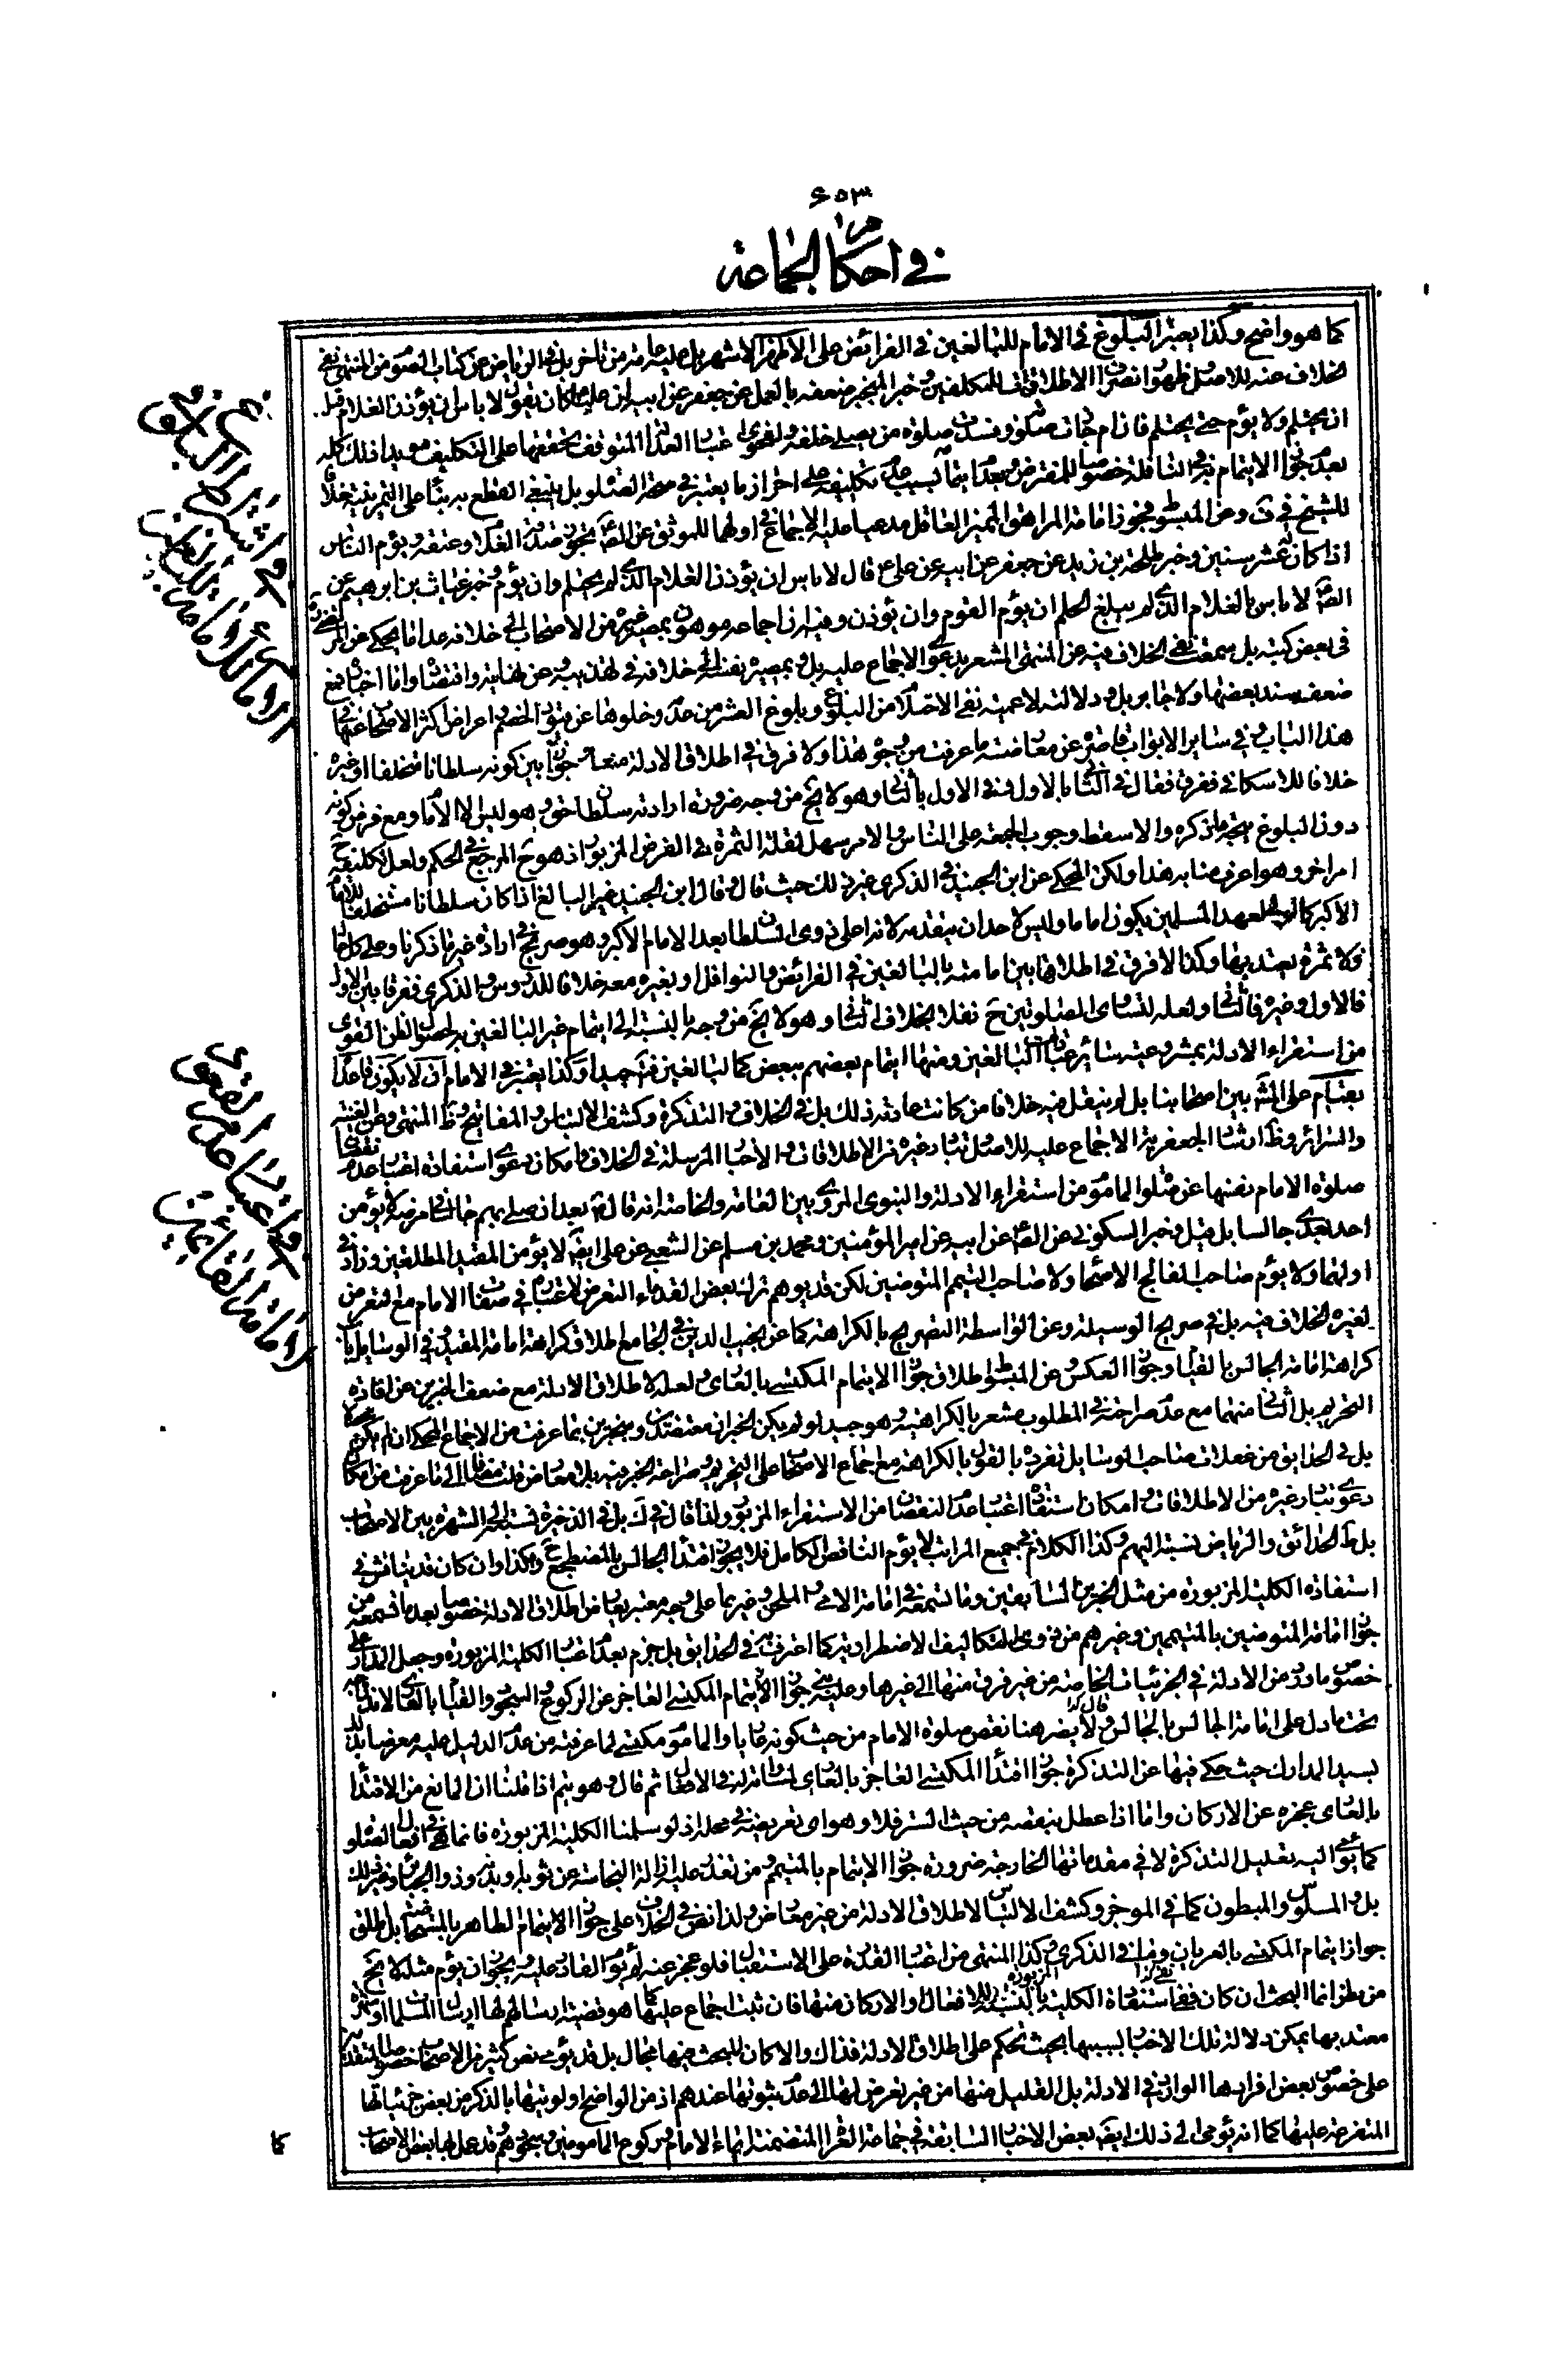 ۶۵۳
في احكام الجماعة
كما هو واضح وكذا يعتبر البلوغ في الامام للبالغين في الفرائض على الاظهر الاشهر بل عليه عامة من تأخر بل في الرياض عن كتاب الصوم من المنتهى نفي
الخلاف عنه للاصل وظهور انصراف الاطلاقات الى المكلفين وخبر المنجبر ضعفه بالعمل عن جعفر عن ابيه ان عليا كان يقول لا باس ان يؤذن الغلام قبل
ان يحتلم ولا يؤم حتى يحتلم فان ام جازت صلوته وفسدت صلوة من يصلي خلفه ولفحوى اعتبار العدالة المتوقف تحققها على التكليف مؤيدا ذلك كله
بعدم جواز الايتمام في النافلة خصوصا للمفترض وبعدم ائتمانه بسبب عدم تكليفه على احراز ما يعتبر في صحة الصلوة بل ينبغي القطع به بناء على التمرينية خلافا
للشيخ في ف وعن المبسوط فجوز امامة المراهق المميز العاقل مدعيا عليه الاجماع في اولهما للموثق عن الصادق يجوز صدقة الغلام وعتقه ويؤم الناس
اذا كان له عشر سنين وخبر طلحة بن زيد عن جعفر عن ابيه عن علي ع قال لا باس ان يؤذن الغلام الذي لم يحتلم وان يؤم وخبر غياث بن ابرهيم عن
الصادق لا باس بالغلام الذي لم يبلغ الحلم ان يؤم القوم وان يؤذن وفيه ان اجماعه موهون بمصير غيره من الاصحاب الى خلافه عدا ما يحكى عن المرتضى
في بعض كتبه بل سمعت نفي الخلاف فيه عن المنتهى المشعر بدعوى الاجماع عليه بل وبمصيره بنفسه الى خلافه في تهذيبه وعن نهايته واقتصاده واما اخباره فمع
ضعف سند بعضها ولا جابر بل ودلالته لاعمية نفي الاحتلام من البلوغ وبلوغ العشر من عدمه وخلوها عن فتوى الخصم واعراض اكثر الاصحاب عنها في
هذا الباب وفي ساير الابواب قاصرة عن معارضة ما عرفت من وجوه هذا ولا فرق في اطلاق الادلة منعا وجوازا بين كونه سلطانا مستخلفا او غيره
خلافا للاسكافي ففرق فقال في الثاني بالاول وفي الاول بالثاني وهو لا يخ من وجه ضرورة ارادته سلطان حق وهو ليس الا الامام ومع فرض كونه
دون البلوغ يتجه ما ذكره والا سقط وجوب الجمعة على الناس والامر سهل لقلة الثمرة في الفرض المزبور اذ هو ح المرجع في الحكم ولعل تكليفه ح
امر اخر وهو اعرف منا به هذا ولكن المحكي عن ابن الجنيد في الذكرى غير ذلك حيث قال وقال ابن الجنيد غير البالغ اذا كان سلطانا مستخلفا للامام
الاكبر كالولي لعهد المسلمين يكون اماما وليس لاحد ان يتقدمه لانه اعلى ذوى السلطان بعد الامام الاكبر وهو صريح في ارادة غير ما ذكرنا وعلى كل حال
فلا ثمرة يعتد بها وكذا لا فرق في اطلاقها بين امامته بالبالغين في الفرائض والنوافل او بغيره معه خلافا للدروس والذكرى ففرقا بين الاول
فالاول وغيره فالثاني ولعله لتساوى الصلوتين ح نفلا بخلاف الثاني وهو لا يخ من وجه بالنسبة الى ايتمام غير البالغين به لحصول الظن القوى
من استقراء الادلة بمشروعية سائر عبادات البالغين ومنها ايتمام بعضهم ببعض كالبالغين فتـ جيدا وكذا يعتبر في الامام ان لا يكون قاعدا
بقيام على المشهور بين اصحابنا بل لم ينقل فيه خلافا من كانت عادته ذلك بل في الخلاف والتذكرة وكشف الالتباس والمفاتيح وظ المنتهى وعن الغنية
والسرائر وظ ارشاد الجعفرية الاجماع عليه للاصل وتبادر غيره من الاطلاقات والاخبار المرسلة في الخلاف وامكان دعوى استفادة اعتبار عدم نقصان
صلوة الامام بنفسها عن صلوة المأموم من استقراء الادلة والنبوى المروى بين العامة والخاصة انه قال بعد ان صلى بهم جالسا في مرضه لا يؤمن
احد بعدى جالسا بل قيل وخبر السكوني عن الصادق عن ابيه عن امير المؤمنين ومحمد بن مسلم عن الشعبي عن علي ايضا لا يؤمن المقيد المطلقين وزاد في
اولهما ولا يؤم صاحب الفالج الاصحاء ولا صاحب التيمم المتوضين لكن قد يوهم ترك بعض القدماء التعرض لاعتباره في صفات الامام مع التعرض
لغيره الخلاف فيه بل في صريح الوسيلة وعن الواسطة التصريح بالكراهة كما عن نجيب الدين في الجامع اطلاق كراهة امامة المقيد وفي الوسايل باب
كراهة امامة الجالس بالقيام وجواز العكس وعن المبسوط اطلاق جواز الايتمام المكتسي بالعاري ولعله لاطلاق الادلة مع ضعف الخبرين عن افادة
التحريم بل الثاني منهما مع عدم صراحته في المطلوب مشعر بالكراهية وهو جيد لو لم يكن الخبران معتضدين ومنجبرين بما عرفت من الاجماع المحكي ان لم يكن محصلا
بل في الحدائق من غفلات صاحب الوسايل تفرده بالقول بالكراهة مع اجماع الاصحاب على التحريم وصراحة الخبر فيه بلا معارض قلت مضافا الى ما عرفت من امكان
دعوى تبادر غيره من الاطلاقات وامكان استفادة اعتبار عدم النقصان من الاستقراء المزبور ولذا قال في ك بل في الذخيرة نسبته الى الشهرة بين الاصحاب
بل ظ الحدائق والرياض نسبته اليهم وكذا الكلام في جميع المراتب لا يؤم الناقص الكامل فلا يجوز اقتداء الجالس بالمضطجع وهكذا وان كان قد يناقش في
استفادة الكلية المزبورة من مثل الخبرين السابقين وما تسمعه في امامة الامي والملحن وغيرهما على وجه معتبر يعارض اطلاق الادلة خصوصا بعد ما تسمعه من
جواز امامة المتوضين بالمتيممين وغيرهم من ذوى التكاليف الاضطرارية كما اعترف به في الحدائق بل جزم بعدم اعتبار الكلية المزبورة وجعل المدار على
خصوص ما ورد من الادلة في الجزئيات الخاصة من غير فرق منها الى غيرها وعليه يبنى جواز الايتمام المكتسي العاجز عن الركوع والسجود والقيام بالعاري لاندراجه
تحت ما دل على امامة الجالس بالجالس قال ولا يضر هنا نقص صلوة الامام من حيث كونه عاريا والماموم مكتسي لما عرفته من عدم الدليل عليه معرضا بذلك
لسيد المدارك حيث حكى فيها عن التذكرة جواز اقتداء المكتسي العاجز بالعاري لمساواته له في الافعال ثم قال وهو يتم اذا قلنا ان المانع من الاقتداء
بالعاري عجزه عن الاركان واما اذا علل بنقصه من حيث الستر فلا وهو اى تعريضه في محله اذ لو سلمنا الكلية المزبورة فانما هي في افعال الصلوة
كما يؤمي اليه تعليل التذكرة لا في مقدماتها الخارجة ضرورة جواز الايتمام بالمتيمم ومن تعذر عليه ازالة النجاسة عن ثوبه او بدنه وذو الجباير وغير ذلك
بل والمسلوس والمبطون كما في الموجز وكشف الالتباس لاطلاق الادلة من غير معارض ولذا نص في الخلاف على جواز الايتمام الطاهر بالمستحاضة بل اطلق
جواز ايتمام المكتسي بالعريان وما في الذكرى وكذا المنتهى من اعتبار القدرة على الاستقبال فلو عجز عنه لم يؤم القادر عليه ويجوز ان يؤم مثله لا يخ
من نظر انما البحث ان كان ففي استفادة الكلية المزبورة بالنسبة للافعال او الاركان منها فان ثبت اجماع عليها كما هو قضية ارسالهم لها ارسال المسلمات او شهرة
معتد بها يمكن دلالة تلك الاخبار بسببها بحيث تحكم على اطلاق الادلة فذاك والا كان للبحث فيها مجال بل قد يؤمي نص كثير من الاصحاب خصوصا القدماء
على خصوص بعض افرادها الوارد في الادلة بل القليل منها من غير تعرض لها الى عدم ثبوتها عندهم اذ من الواضح اولويتها بالذكر من بعض جزئياتها
المتفرعة عليها كما انه يؤمى الى ذلك ايضا بعض الاخبار السابقة في جماعة العراة المتضمنة ايماء الامام وركوع المامومين وسجودهم وقد عمل بها بعض الاصحاب
كا
في اشتراط البلوغ
في اعتبار عدم القعود
في امامة القائمين